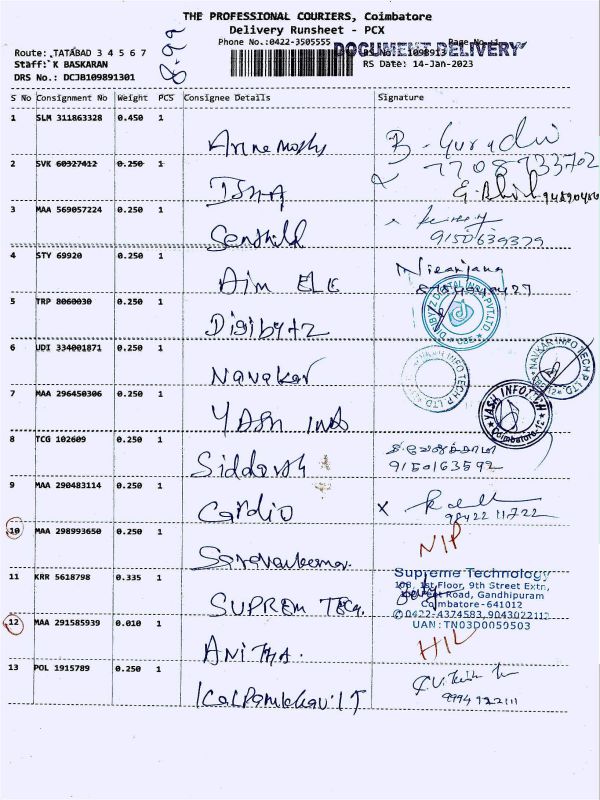 THE PROFESSIONAL COURIERS, Coimbatore
Delivery Runsheet - PCX
Phone No.:0422-3505555
Page No.:1
DOCUMENT DELIVERY
Route: TATABAD 3 4 5 6 7
8.99
RS No.: 1098913
Staff: K BASKARAN
RS Date: 14-Jan-2023
DRS No.: DCJB109891301
S No Consignment No Weight PCS Consignee Details Signature
1 SLM 311863328 0.450 1
7708733702
2 SVK 60327412 0.250 1 ISHA
3 MAA 569057224 0.250 1 Senthil
9150639379
4 STY 69920 0.250 1 Aim ELE Niranjana
5 TRP 8060030 0.250 1 Digibytz
6 UDI 334001871 0.250 1 Navakar
NAVKAR INFO TECH P LTD
NAVKAR INFO TECH P LTD
7 MAA 296450306 0.250 1 YASH Info
YASH INFOTECH
Coimbatore-12
8 TCG 102609 0.250 1 Siddarth
9150163592
9 MAA 290483114 0.250 1 Cardio X
98422 11722
10 MAA 298993650 0.250 1 Saravankumar
NIP
11 KRR 5618798 0.335 1 SUPREM TECH.
Supreme Technology
108, 1st Floor, 9th Street Extn,
Road, Gandhipuram
Coimbatore-641012
✆0422-4374583,9043022112
UAN:TN03D0059503
12 MAA 291585939 0.010 1 ANITHA.
13 POL 1915789 0.250 1